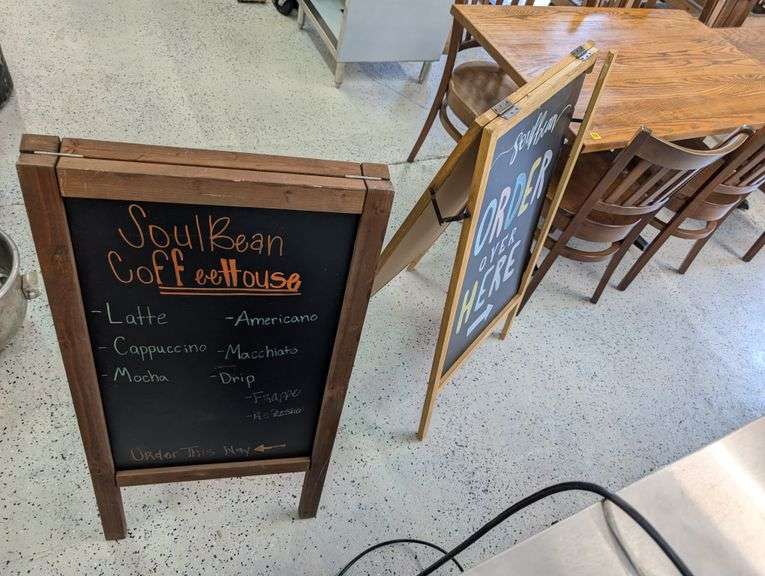 SoulBean
CoffeeHouse
-Latte
-Cappuccino
-Mocha
-Americano
-Macchiato
-Drip
-Frappe
Order This Way ←
soulbean
ORDER
OVER
HERE
→